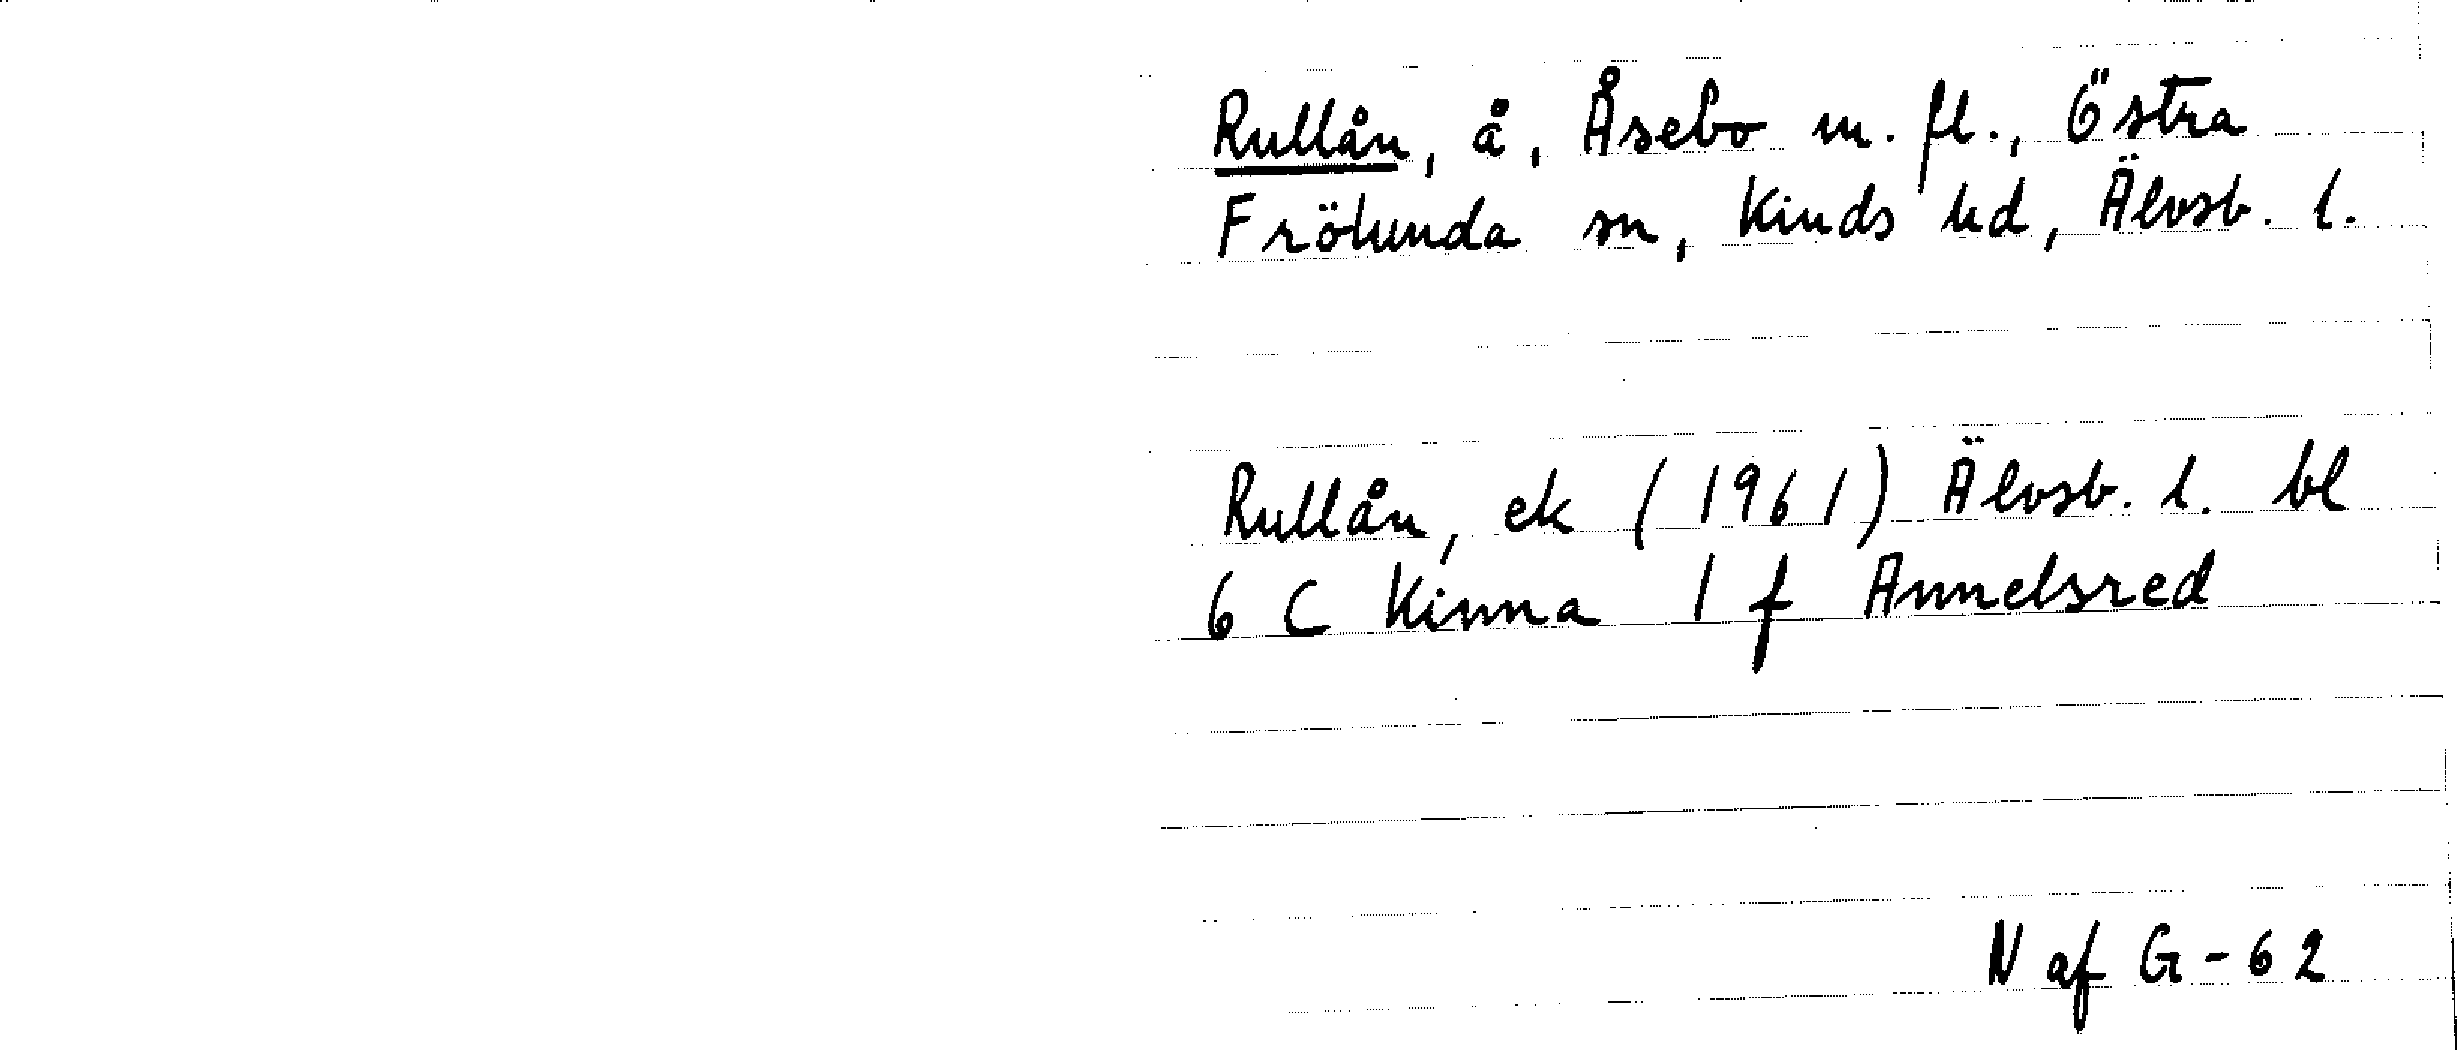 Rullån, å, Åsebo m. fl., Östra
Frölunda sn, Kinds hd, Älvsb. l.
Rullån, ek (1961) Älvsb. l. bl
6 C Kinna 1 f Annelsred
N af G - 62